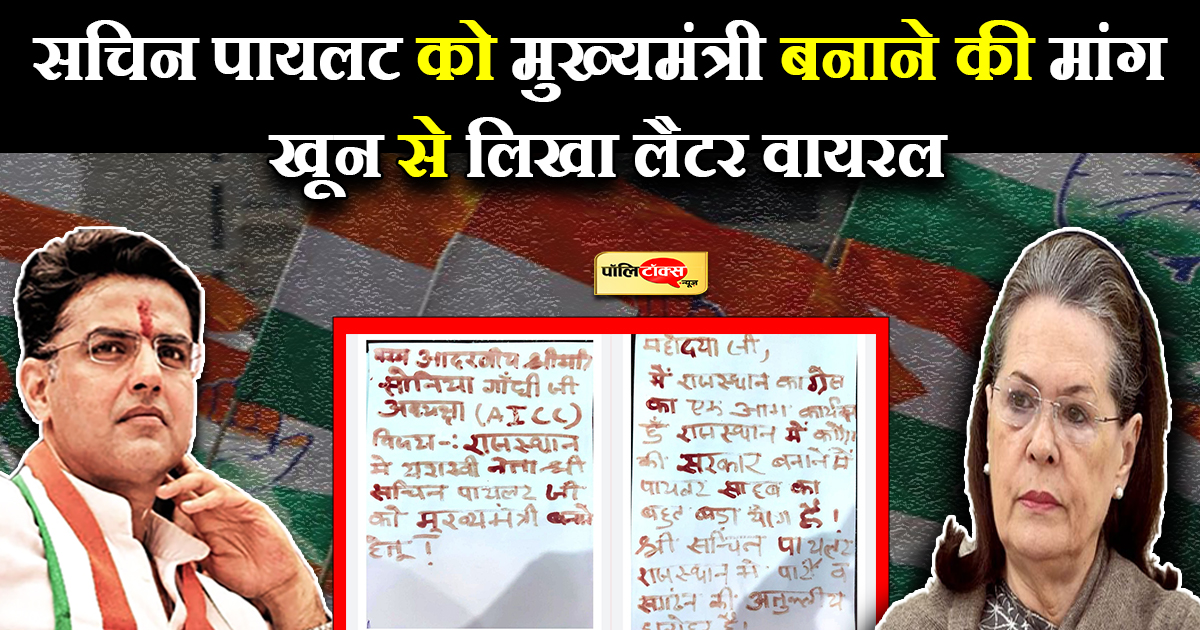 सचिन पायलट को मुख्यमंत्री बनाने की मांग
खून से लिखा लैटर वायरल
पॉलिटॉक्स
न्यूज
आदरणीय श्रीमति
सोनिया गाँधी जी
अध्यक्षा (AICC)
विषय -: राजस्थान
मे यशस्वी नेता श्री
सचिन पायलट जी
को मुख्यमंत्री बनाने
हेतू !
महोदया जी,
मैं राजस्थान कांग्रेस
का एक आम
हूँ राजस्थान में
की सरकार बनाने में
पायलट साहब का
बहुत बड़ा योग है।
श्री सचिन पायलट
राजस्थान में व
संगठन की अतुल्लीय